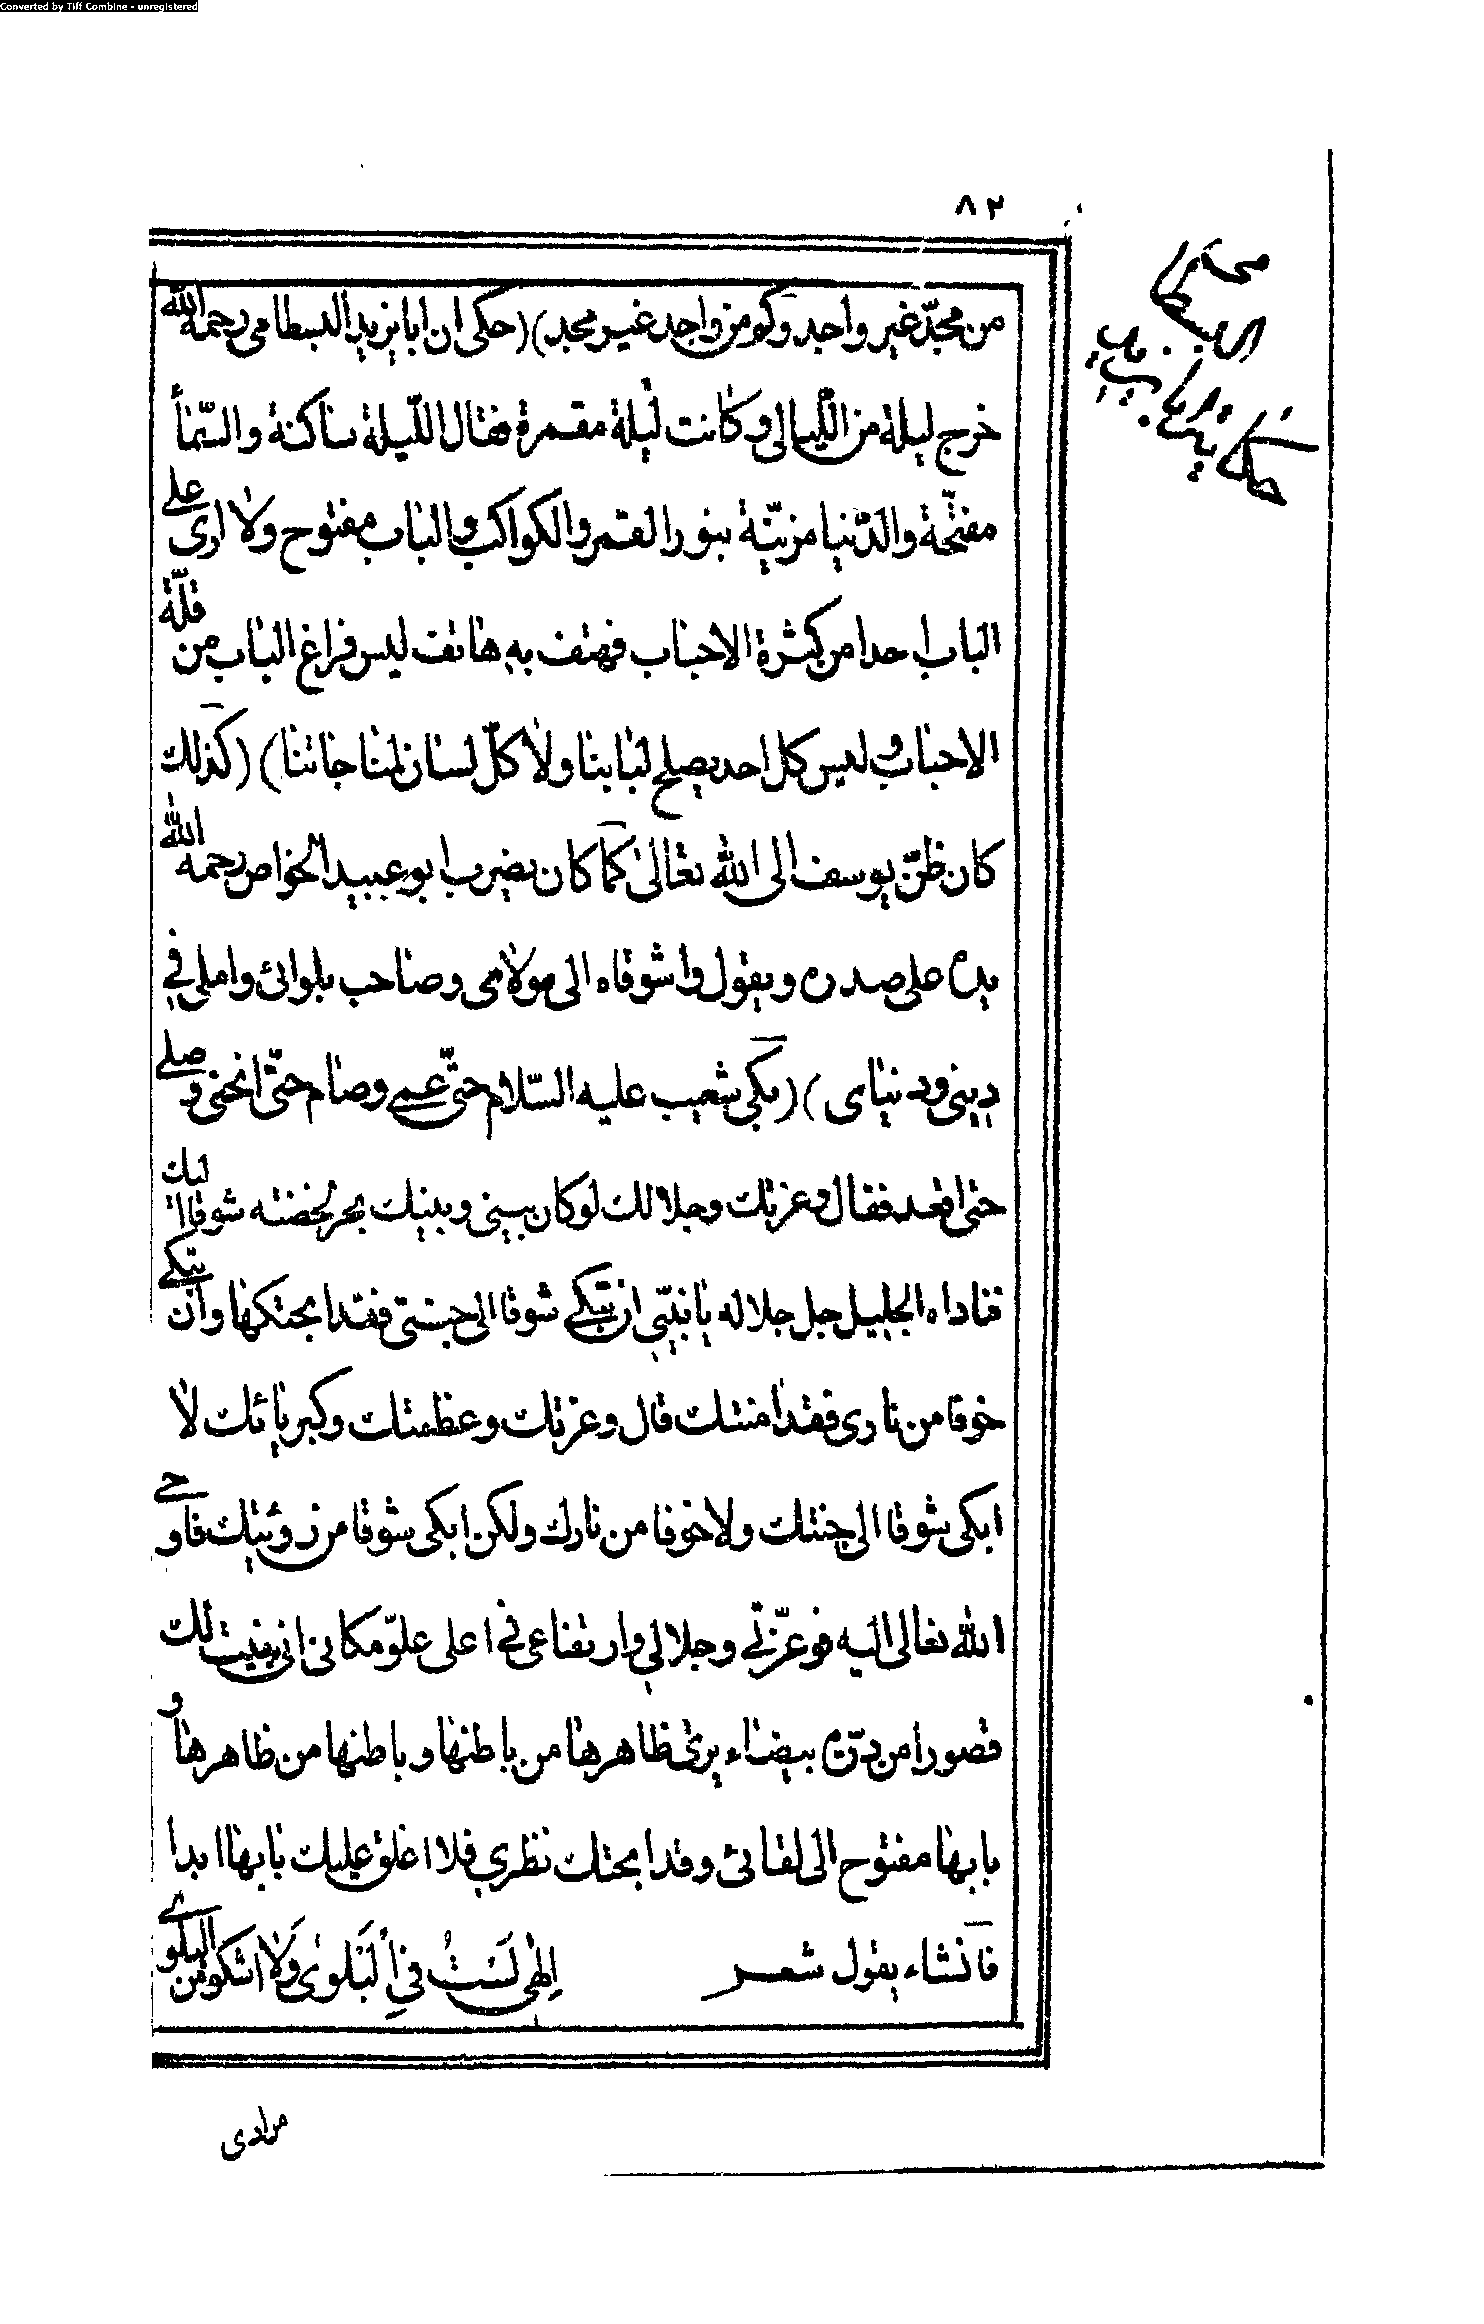 Converted by Tiff Combine - unregistered
٨٢
من مجدّ غير واجد وكو من واجد غير مجد)(حكى ان ابا يزيد البسطامى رحمه الله
خرج ليلة من الليالى وكانت ليلة مقمرة فقال الليلة ساكنة والسّماء
مفتحة والدّنيا مزيّنة بنور القمر والكواكب والباب مفتوح ولا ارى على
الباب احدا من كثرة الاحباب فهتف به هاتف ليس فراغ الباب من قلّة
الاحباب وليس كل احد يصلح لبابنا ولا كلّ لسان لمناجاتنا)(كذلك
كان ظنّ يوسف الى الله تعالى كما كان يضرب ابو عبيد الخواص رحمه الله
يده على صدره ويقول واشوقاه الى مولامى وصاحب بلوائ واملى في
دينى ودنياى)(بكى شعيب عليه السّلام حتّى عمى وصام حتّى انحنى وصلى
حتى اقعد فقال وعزتك وجلالك لو كان بينى وبينك بحر لخضته شوقا اليك
فناداه الجليل جل جلاله يا نبيّى ان تبكى شوقا الى جنتى فقد ابحتكها وان تبكى
خوفا من نارى فقد امنتك قال وعزتك وعظمتك وكبريائك لا
ابكى شوقا الى جنتك ولا خوفا من نارك ولكن ابكى شوقا من رؤيتك فاوحى
الله تعالى اليه فوعزّتي وجلالي وارتفاعى في اعلى علوّ مكانى انى بنيت لك
قصورا من درّة بيضاء يرى ظاهرها من باطنها وباطنها من ظاهرها و
بابها مفتوح الى لقائى وقد ابحتك نظري فلا اغلق عليك بابها ابدا
فانشاء يقول شعر الهى لَسْتُ فى البَلوى وَلا اشكو من البلوى
مرادى